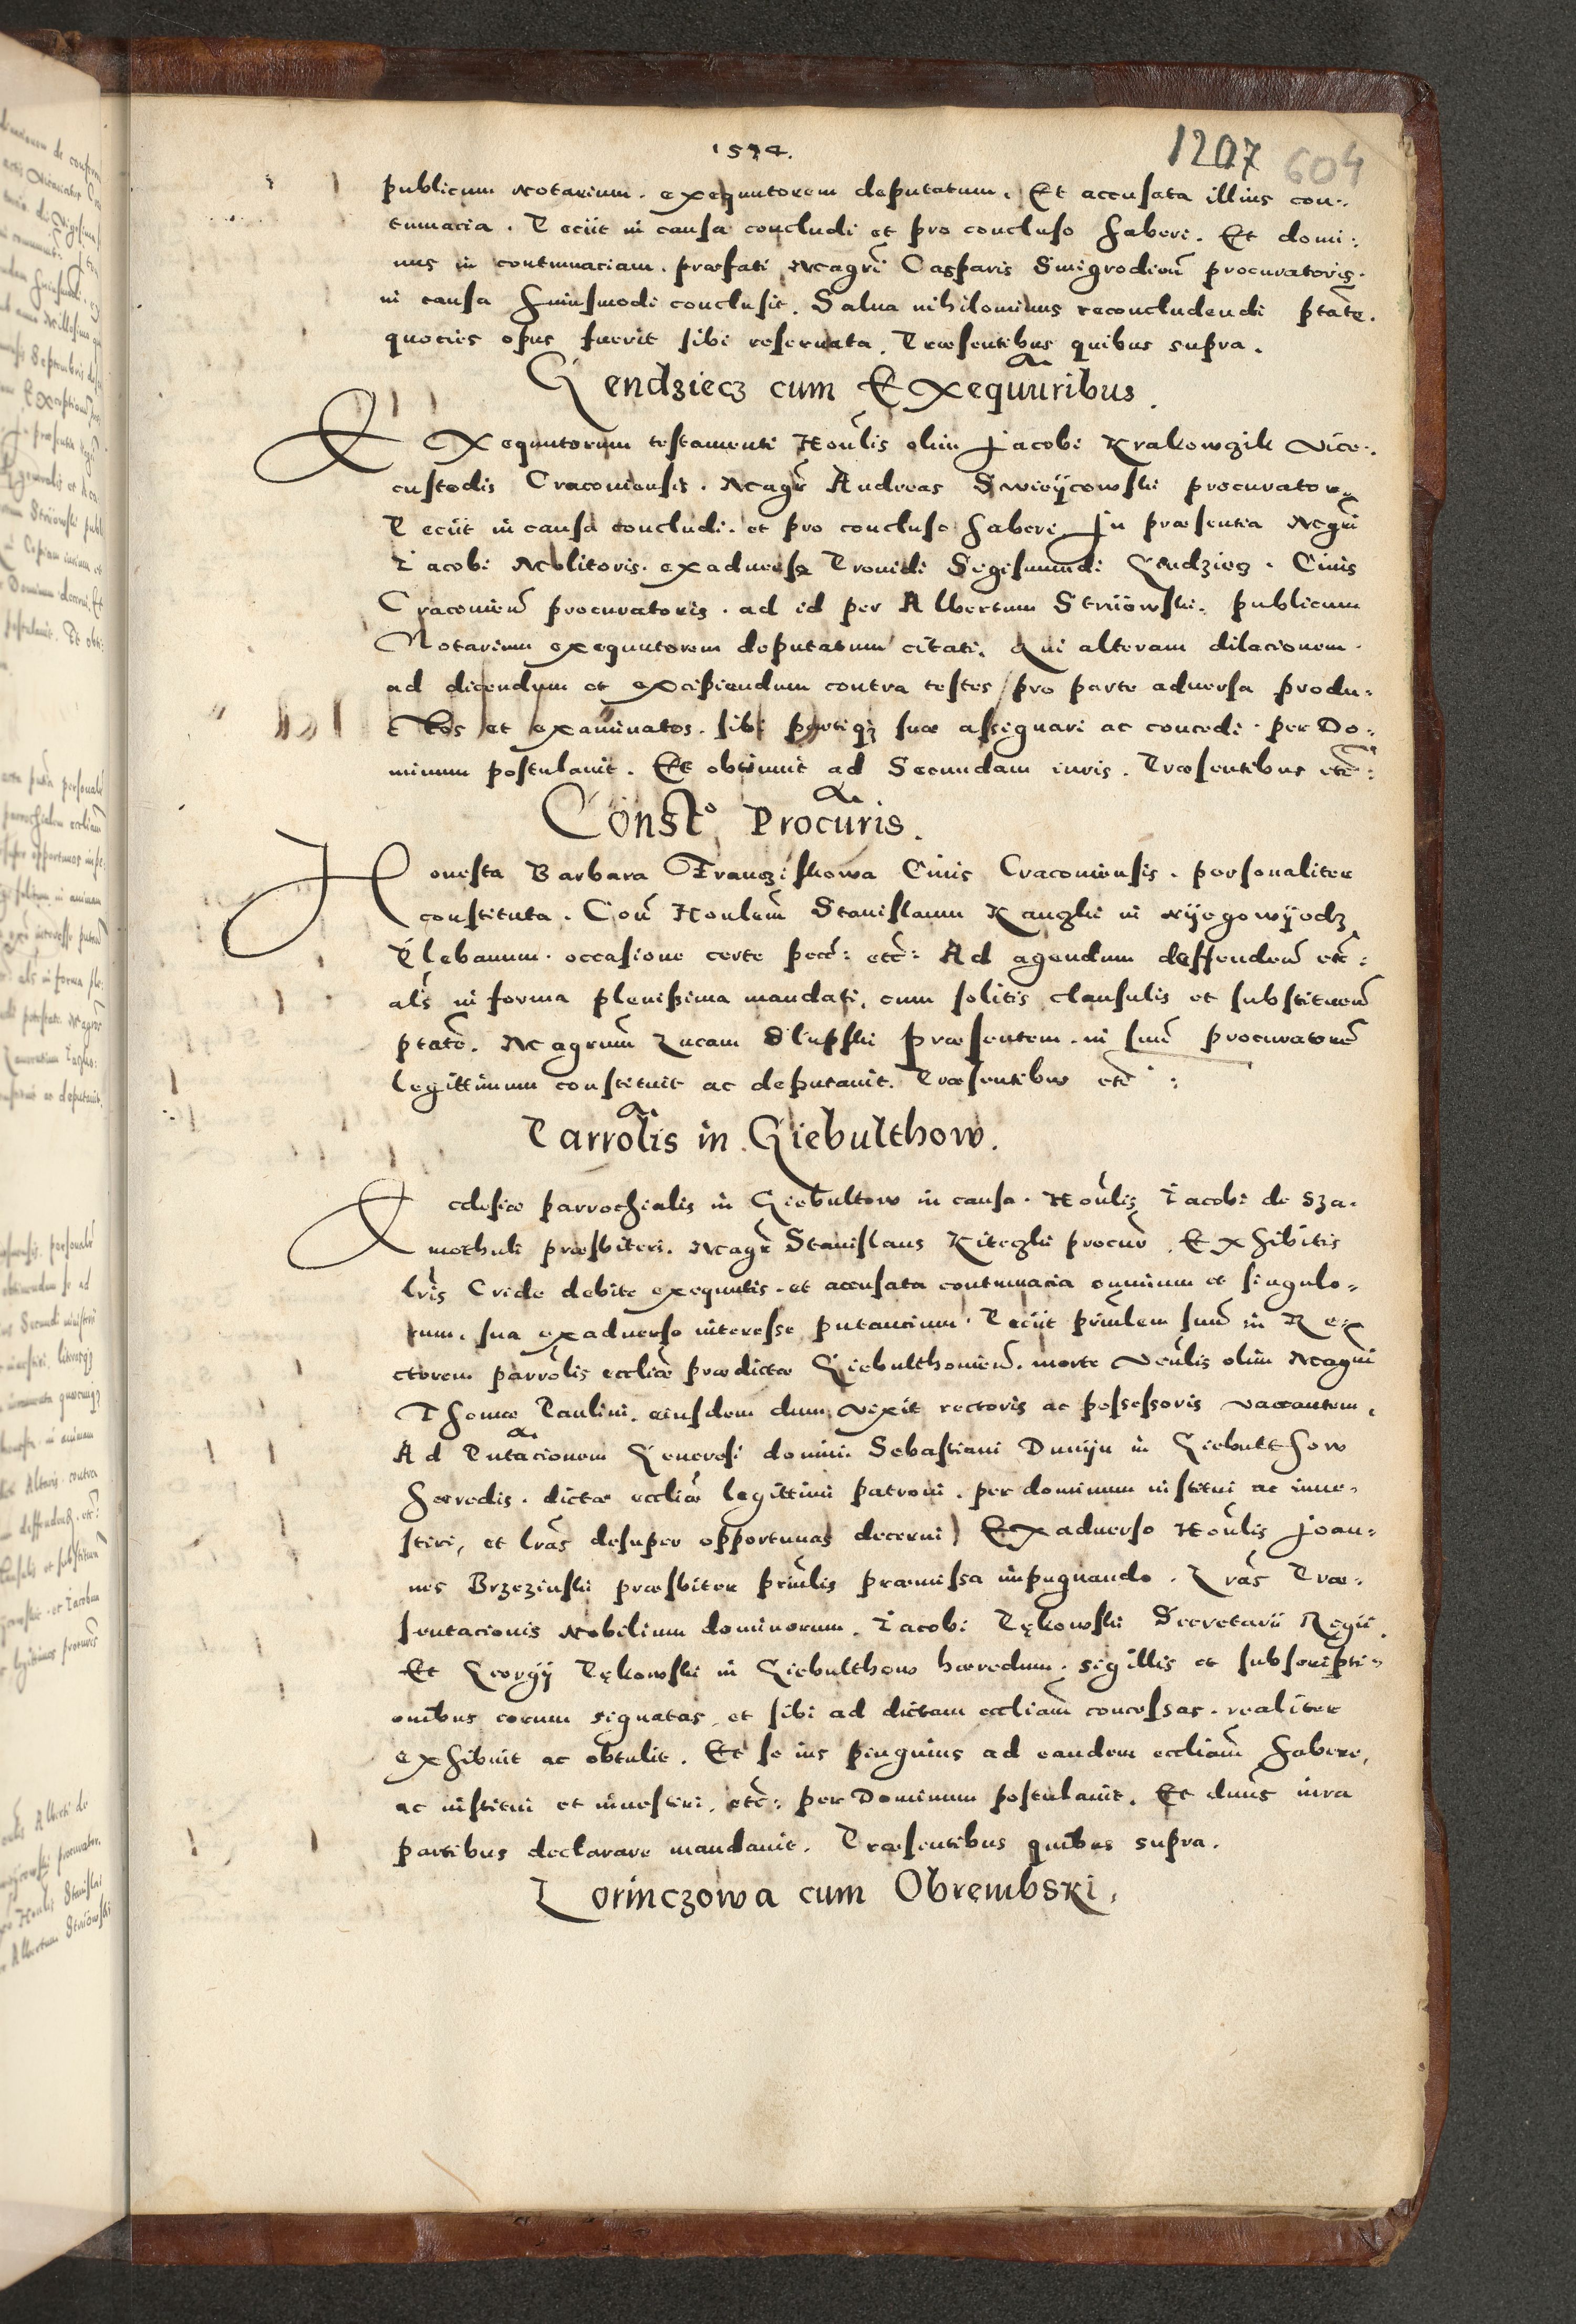 1574.
1207 604
publicum Notarium. exequutorem deputatum. Et accusata illius con-
tumacia. Peciit in causa concludi et pro concluso haberi. Et domi-
nus in contumaciam. præfati Magri Casparis Smigrodien procuratoris.
in causa huiusmodi conclusit. Salua nihilominus reconcludendi ptate.
quocies opus fuerit sibi reseruata. Præsentibus quibus supra.
Gendziecz cum Exequuribus.
Exequutorum testamenti Houlis olim Jacobi Krakowczik Vice-
custodis Cracouiensis. Magr Andreas Swieÿcowski procurator.
Peciit in causa concludi. et pro concluso habere. In præsentia Magri
Iacobi Molitoris. exaduerso Prouidi Segismundi Gendziecz. Ciuis
Cracouien procuratoris. ad id per Albertum Striiowski. publicum
Notarium exequutorem deputatum citati. Qui alteram dilacionem.
ad dicendum et excipiendum contra testes pro parte aduersa produ-
ctos et examinatos. sibi partiqz suæ assignari ac concedi. per Do-
minum postulauit. Et obtinuit ad Secundam iuris. Præsentibus etc:
Consto Procuris.
Honesta Barbara Francziskowa Ciuis Cracouiensis. personaliter
constituta. Con Houlem Stanislaum Kanczki in Nÿegowÿedz
Plebanum. occasione certe pecc: etc: Ad agendum deffenden etc:
als in forma plenissima mandati. cum solitis clausulis et substituen
ptate. Magrum Lucam Slupski præsentem. in suu procuratore
legittimum constituit ac deputauit. Præsentibus etc:
Parrolis in Giebulthow.
Ecclesiæ parrochialis in Giebultow in causa. Houlis Iacobi de Sza-
mothuli præsbiteri. Magr Stanislaus Kiteczki procur. Exhibitis
lris Cride debite exequutis. et accusata contumacia omnium et singulo-
rum. sua exaduerso interesse putancium. Peciit prinlem suu in Re-
ctorem parrolis eccliæ prædictæ Giebulthouien. morte Venlis olim Magri
Thomæ Paulini. eiusdem dum vixit rectoris ac possessoris vacantem.
Ad Pntacionem Generosi domini Sebastiani Duniju in Giebulthow
hæredis. dictæ eccliæ legittimi patroni. per dominum institui ac inue-
stiri, et lras desuper opportunas decerni) Exaduerso Houlis Joan-
nes Brzezinski præsbiter prinlis præmissa impugnando. Lras Præ-
sentacionis Nobilium dominorum. Iacobi Pękowski Secretarii Regii.
Et Georgÿ Pękowski in Giebulthow hæredum. sigillis et subscripti-
onibus eorum signatas, et sibi ad dictam eccliam concessas. realiter
exhibuit ac obtulit. Et se ius pinguius ad eandem eccliam habere,
ac institui et inuestiri, etc: per Dominum postulauit. Et dnus iura
partibus declarare mandauit. Præsentibus quibus supra.
Lorinczowa cum Obrembski.